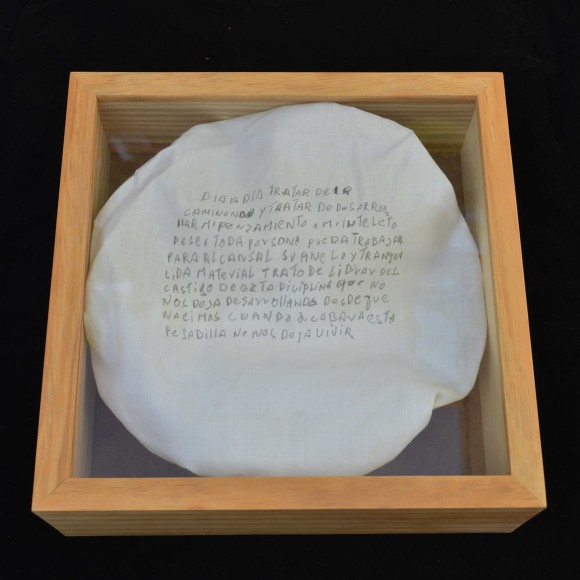 DIA A DIA TRATAR DE IR
CAMINANDO Y TRATAR DE DESARRO
LLAR MI PENZAMIENTO O MI INTELETO
DESEO TODA PERSONA PUEDA TRABAJAR
PARA ALCANSAL SU ANELO Y TRANQUI
LIDA MATERIAL TRATO DE LIDRAR DEL
CASTIGO DE ESTA DICIPLINA QUE NO
NOS DEJA DESARROLLANDO DESDE QUE
NACIMOS CUANDO ACABARA ESTA
PESADILLA NO NOS DEJA VIVIR